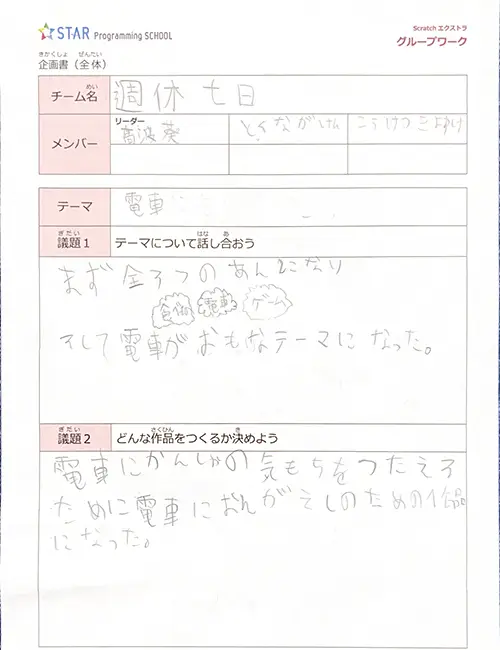 STAR Programming SCHOOL
Scratch エクストラ
グループワーク
きかくしょ ぜんたい
企画書（全体）
めい
チーム名
週休七日
メンバー
リーダー
高波 葵
とくながけん
テーマ
電車
ぎだい
議題1
はな あ
テーマについて話し合おう
まず全3つのあんになり
合体 電車 ゲーム
そして電車がおもなテーマになった。
ぎだい
議題2
さくひん き
どんな作品をつくるか決めよう
電車にかんしゃの気もちをつたえる
ために電車におんがえしのための作品
になった。